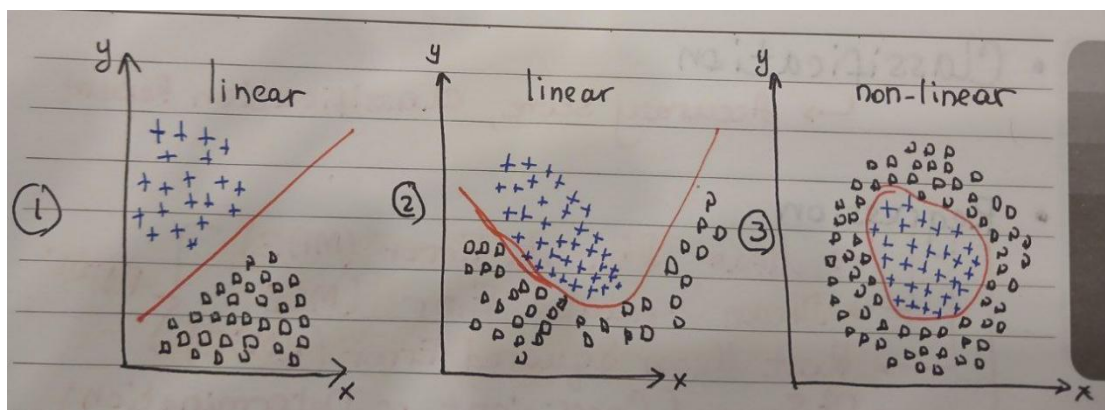 y
linear
①
x
y
linear
②
x
y
non-linear
③
x